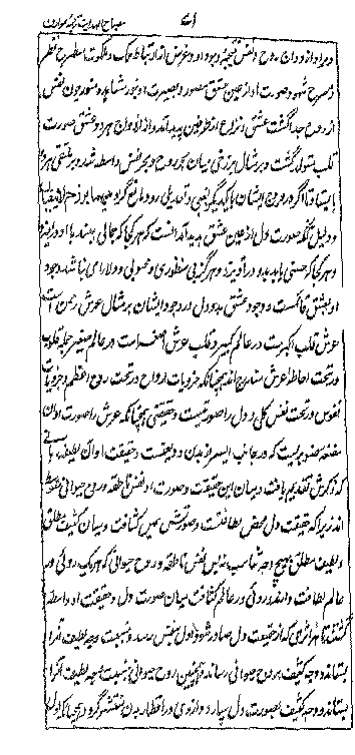 ۷۱ مصباح الهدایت ترجمه عوارف
و مراد از ازدواج روح و نفس نتیجه وجود او و غرض از ارتباط ملک و ملکوت و مطرح نظر
و مسرح شهود صورت او از عین عشق مصور و بصیرت او بنور مشاهده منور چون نفس
از روح جدا گشت عشق و نزاع از طرفین پدید آمد و از ازدواج هر دو عشق صورت
قلب متولد گشت و بر مثال برزخی میان بحر روح و بحر نفس واسطه شد و بر ملتقی هر دو
بایستاد تا اگر در مرج ایشان با یکدیگر بغیی و تعدیی رود مانع گردد بینهما برزخ لا یبغیان
و دلیل آنکه صورت دل از عین عشق پدید آمد آنست که هر کجا که جمالی ببیند با او در آمیزد
و هر کجا که حسنی یابد بدو در آویزد و هرگز بی منظوری و محبوبی و دلارامی نباشد وجود
او بعشق قائمست و وجود عشق بدو دل در وجود ایشان بر مثال عرش رحمن است
عرش قلب اکبرست در عالم کبیر و قلب عرش اصغر است در عالم صغیر جمله قلوب
در تحت احاطه عرش مندرج اند همچنانکه جزویات ارواح در تحت روح اعظم و جزویات
نفوس در تحت نفس کلی و دل را صورتیست و حقیقتی همچنانکه عرش را صورت او آن
مضغه صنوبریست که در جانب ایسر از بدن مودعست و حقیقت او آن لطیفه ربانی
که ذکرش تقدیم یافت و میان این حقیقت و صورت او نفس ناطقه و روح حیوانی متوسط
اند زیرا که حقیقت دل محض لطافتست و صورتش عین کثافت و میان کثیف مطلق
و لطیف مطلق بهیچ وجه مناسبت نه پس نفس ناطقه و روح حیوانی که هر یک روئی در
عالم لطافت دارند و روئی در عالم کثافت میان صورت دل و حقیقت او واسطه
گشتند تا هر اثری که از حقیقت دل صادر شود اول بنفس رسد و بنسبت وجه لطیف آنرا
بستاند و وجه کثیف بروح حیوانی رساند و همچنین روح حیوانی بنسبت وجه لطیف آنرا
بستاند و وجه کثیف بصورت دل سپارد و از وی در اقطار بدن منتشر گردد همچنانکه اول